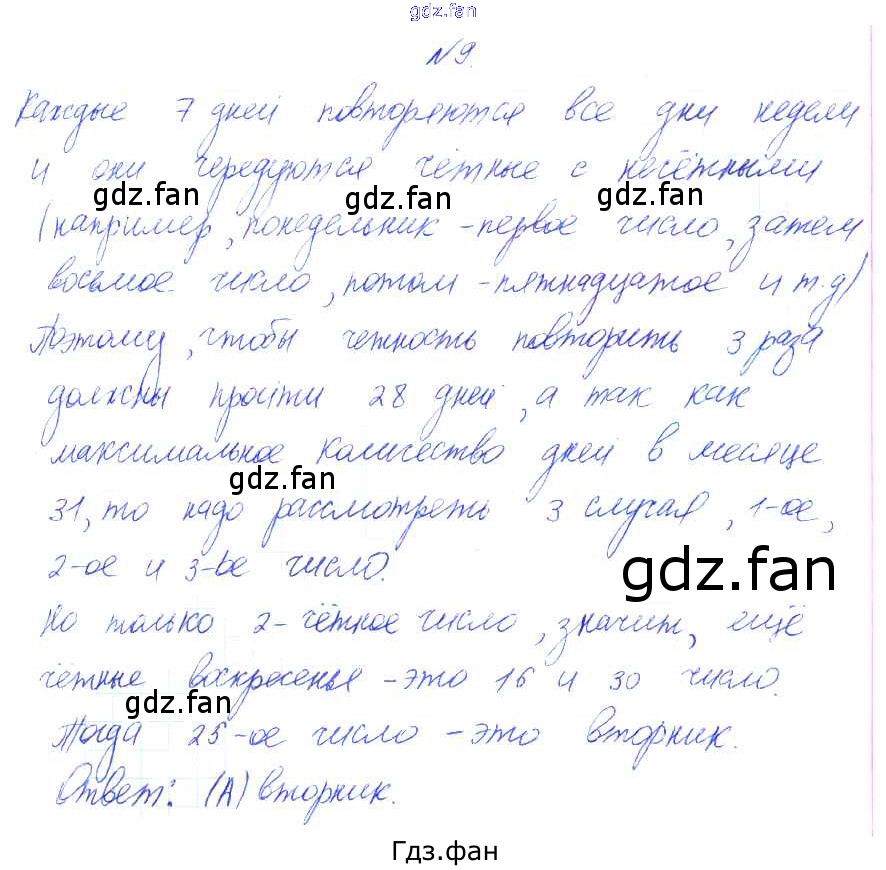 gdz.fan
№9.
Каждые 7 дней повторяются все дни недели
и они чередуются чётные с нечётными
gdz.fan gdz.fan gdz.fan
(например, понедельник - первое число, затем
восьмое число, потом - пятнадцатое и т.д)
Поэтому, чтобы четность повторить 3 раза
должны пройти 28 дней, а так как
максимальное количество дней в месяце
gdz.fan
31, то надо рассмотреть 3 случая, 1-ое,
2-ое и 3-ье число.
gdz.fan
Но только 2 - чётное число, значит, ещё
чётные воскресенья - это 16 и 30 число.
gdz.fan
Тогда 25-ое число - это вторник.
Ответ: (А) вторник.
Гдз.фан